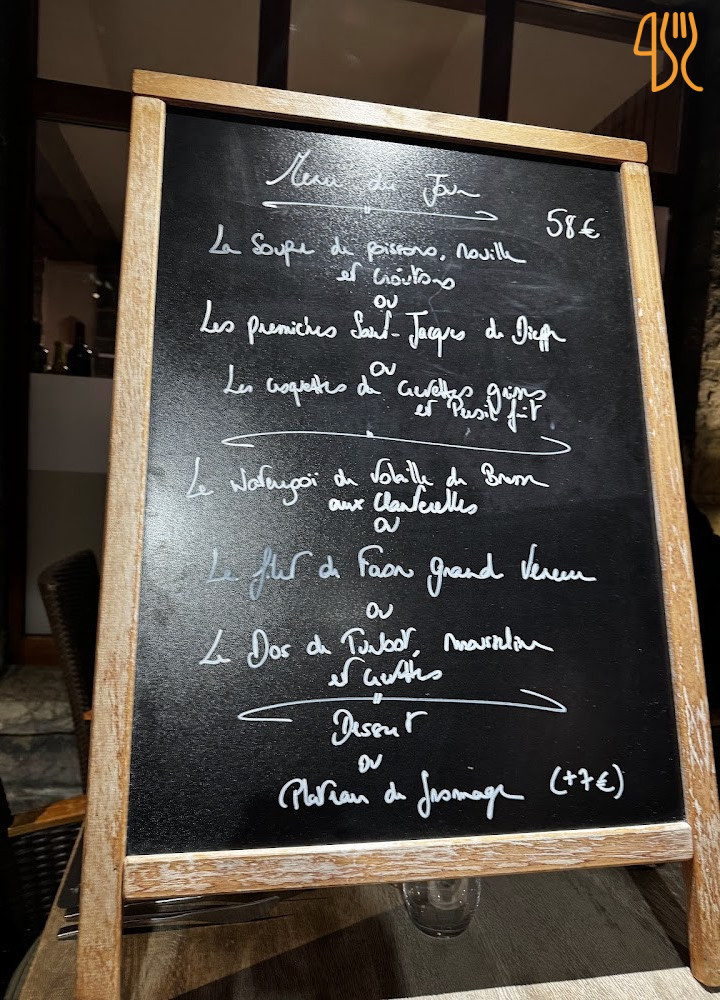 Menu du Jour
58€
La Soupe de poissons, rouille
et croûtons
ou
Les premières Saint-Jacques de Dieppe
ou
Les croquettes de crevettes grises
et Persil frit
Le Waterzooï de Volaille de Bresse
aux Chanterelles
ou
Le filet de Faon grand Veneur
ou
Le Dos de Turbot, mousseline
et crevettes
Dessert
ou
Plateau de fromage (+7€)